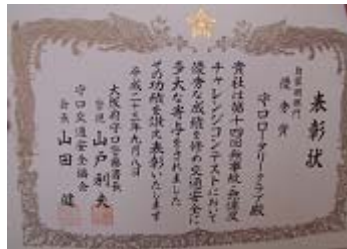 表彰状
自家用部門
優秀賞
守口ロータリークラブ殿
貴社は第十四回無事故・無違反
チャレンジコンテストにおいて
優秀な成績を修め交通安全に
多大な寄与をされました
その功績を讃え表彰いたします
平成二十三年九月八日
大阪府守口警察署長
警視 山戸利夫
守口交通安全協会
会長 山田健